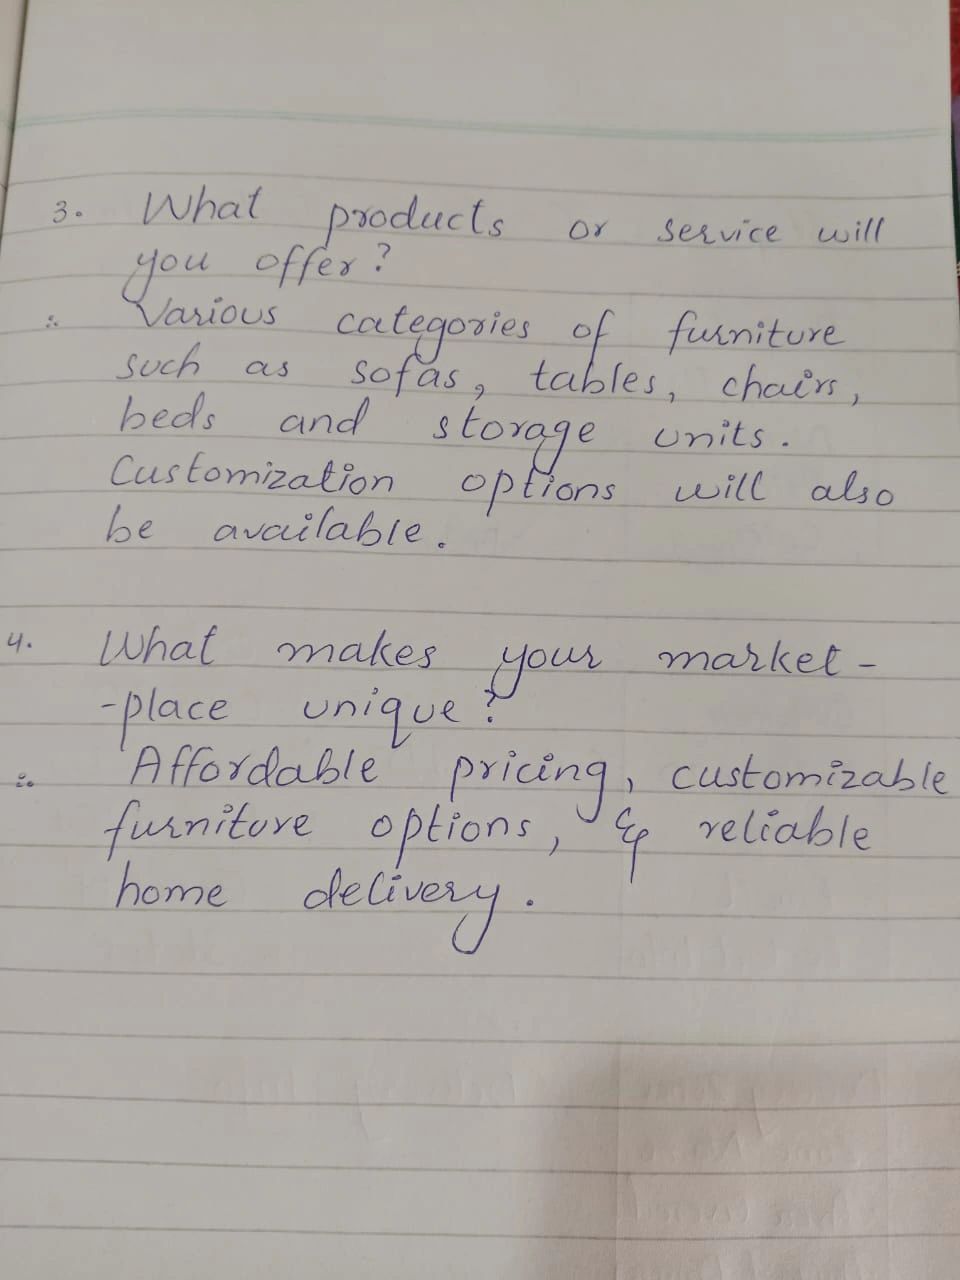 3. What products or service will
you offer?
∴ Various categories of furniture
such as sofas, tables, chairs,
beds and storage units.
Customization options will also
be available.
4. What makes your market-
-place unique?
∴ Affordable pricing, customizable
furniture options, & reliable
home delivery.